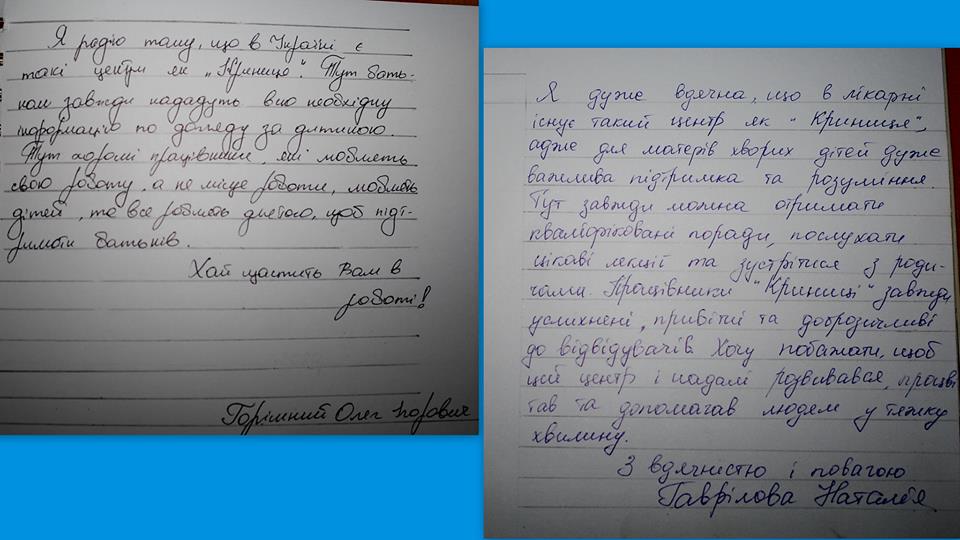 Я радію тому, що в Україні є
такі центри як „Криниця". Тут бать-
кам завжди нададуть всю необхідну
інформацію по догляду за дитиною.
Тут хороші працівники, які люблять
свою роботу, а не місце роботи, люблять
дітей, та все роблять для того, щоб підт-
римати батьків.
Хай щастить Вам в
роботі!
Олег Ігорович
Я дуже вдячна, що в лікарні
існує такий центр як "Криниця",
адже для матерів хворих дітей дуже
важлива підтримка та розуміння.
Тут завжди можна отримати
кваліфіковані поради, послухати
цікаві лекції та зустрітися з роди-
чами. Працівники "Криниці" завжди
усміхнені, привітні та доброзичливі
до відвідувачів. Хочу побажати, щоб
цей центр і надалі розвивався, процві
тав та допомагав людям у тяжку
хвилину.
З вдячністю і повагою
Гаврілова Наталія